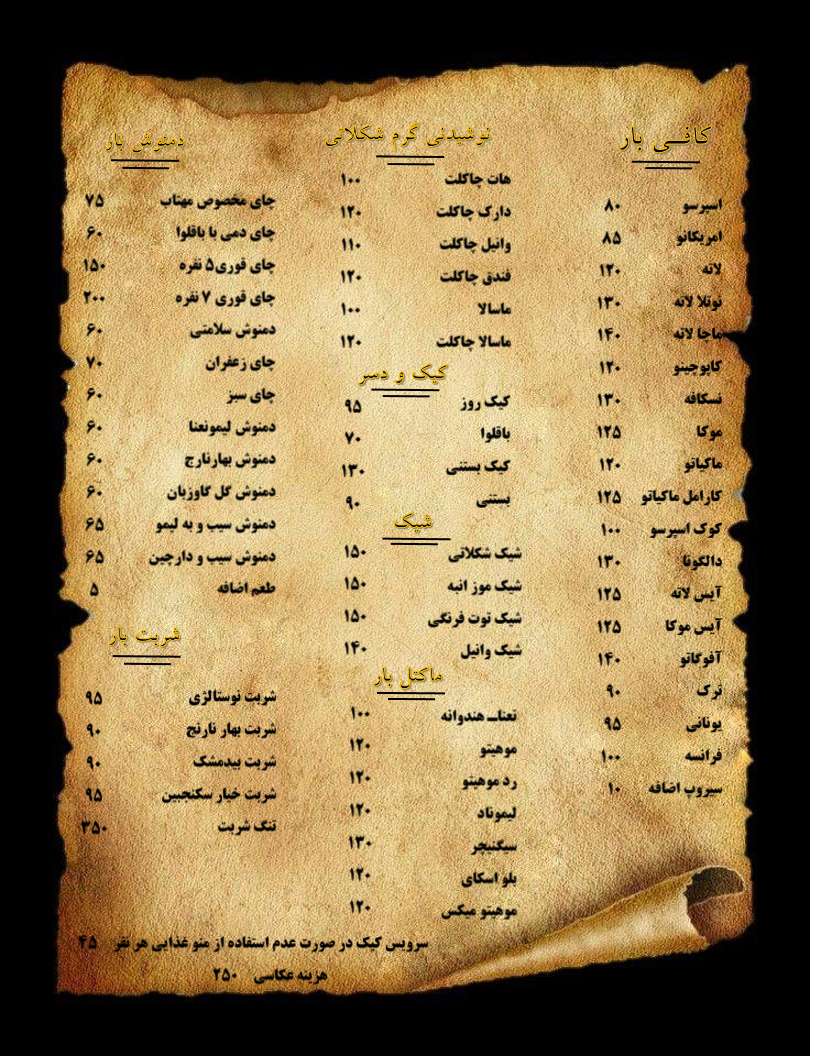 کافی بار
اسپرسو ۸۰
امریکانو ۸۵
لاته ۱۲۰
نوتلا لاته ۱۳۰
ماچا لاته ۱۴۰
کاپوچینو ۱۲۰
نسکافه ۱۳۰
موکا ۱۲۵
ماکیاتو ۱۲۰
کارامل ماکیاتو ۱۲۵
کوک اسپرسو ۱۰۰
دالگونا ۱۳۰
آیس لاته ۱۲۵
آیس موکا ۱۲۵
آفوگاتو ۱۴۰
ترک ۹۰
یونانی ۹۵
فرانسه ۱۰۰
سیروپ اضافه ۱۰
نوشیدنی گرم شکلاتی
هات چاکلت ۱۰۰
دارک چاکلت ۱۲۰
وانیل چاکلت ۱۱۰
فندق چاکلت ۱۲۰
ماسالا ۱۰۰
ماسالا چاکلت ۱۲۰
کیک و دسر
کیک روز ۹۵
باقلوا ۷۰
کیک بستنی ۱۳۰
بستنی ۹۰
شیک
شیک شکلاتی ۱۵۰
شیک موز انبه ۱۵۰
شیک توت فرنگی ۱۵۰
شیک وانیل ۱۴۰
ماکتل بار
نعناـ هندوانه ۱۰۰
موهیتو ۱۲۰
رد موهیتو ۱۲۰
لیموناد ۱۲۰
سیگنیچر ۱۳۰
بلو اسکای ۱۲۰
موهیتو میکس ۱۲۰
دمنوش بار
چای مخصوص مهتاب ۷۵
چای دمی با باقلوا ۶۰
چای قوری۵ نفره ۱۵۰
چای قوری ۷ نفره ۲۰۰
دمنوش سلامتی ۶۰
چای زعفران ۷۰
چای سبز ۶۰
دمنوش لیمونعنا ۶۰
دمنوش بهارنارج ۶۰
دمنوش گل گاوزبان ۶۰
دمنوش سیب و به لیمو ۶۵
دمنوش سیب و دارچین ۶۵
طعم اضافه ۵
شربت بار
شربت نوستالژی ۹۵
شربت بهار نارنج ۹۰
شربت بیدمشک ۹۰
شربت خیار سکنجبین ۹۵
تنگ شربت ۳۵۰
سرویس کیک در صورت عدم استفاده از منو غذایی هر نفر ۴۵
هزینه عکاسی ۲۵۰